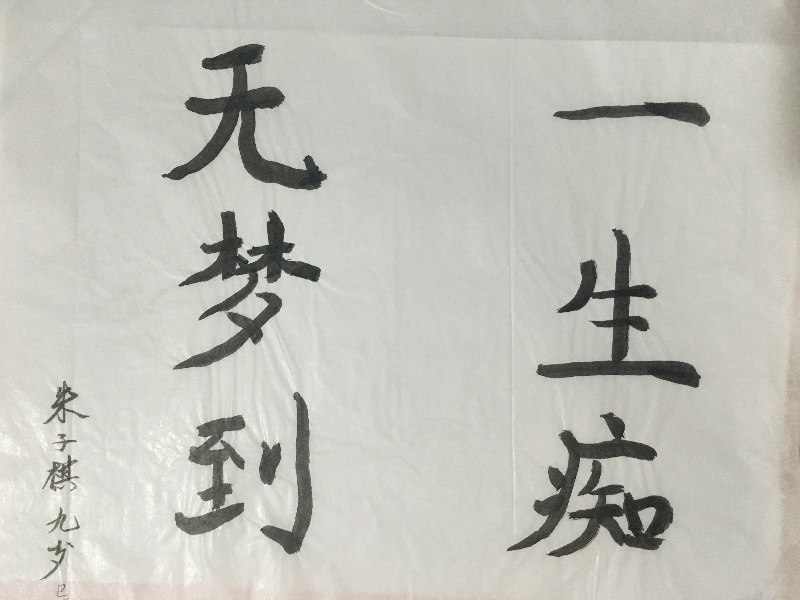 一生痴
无梦到
朱子棋九岁